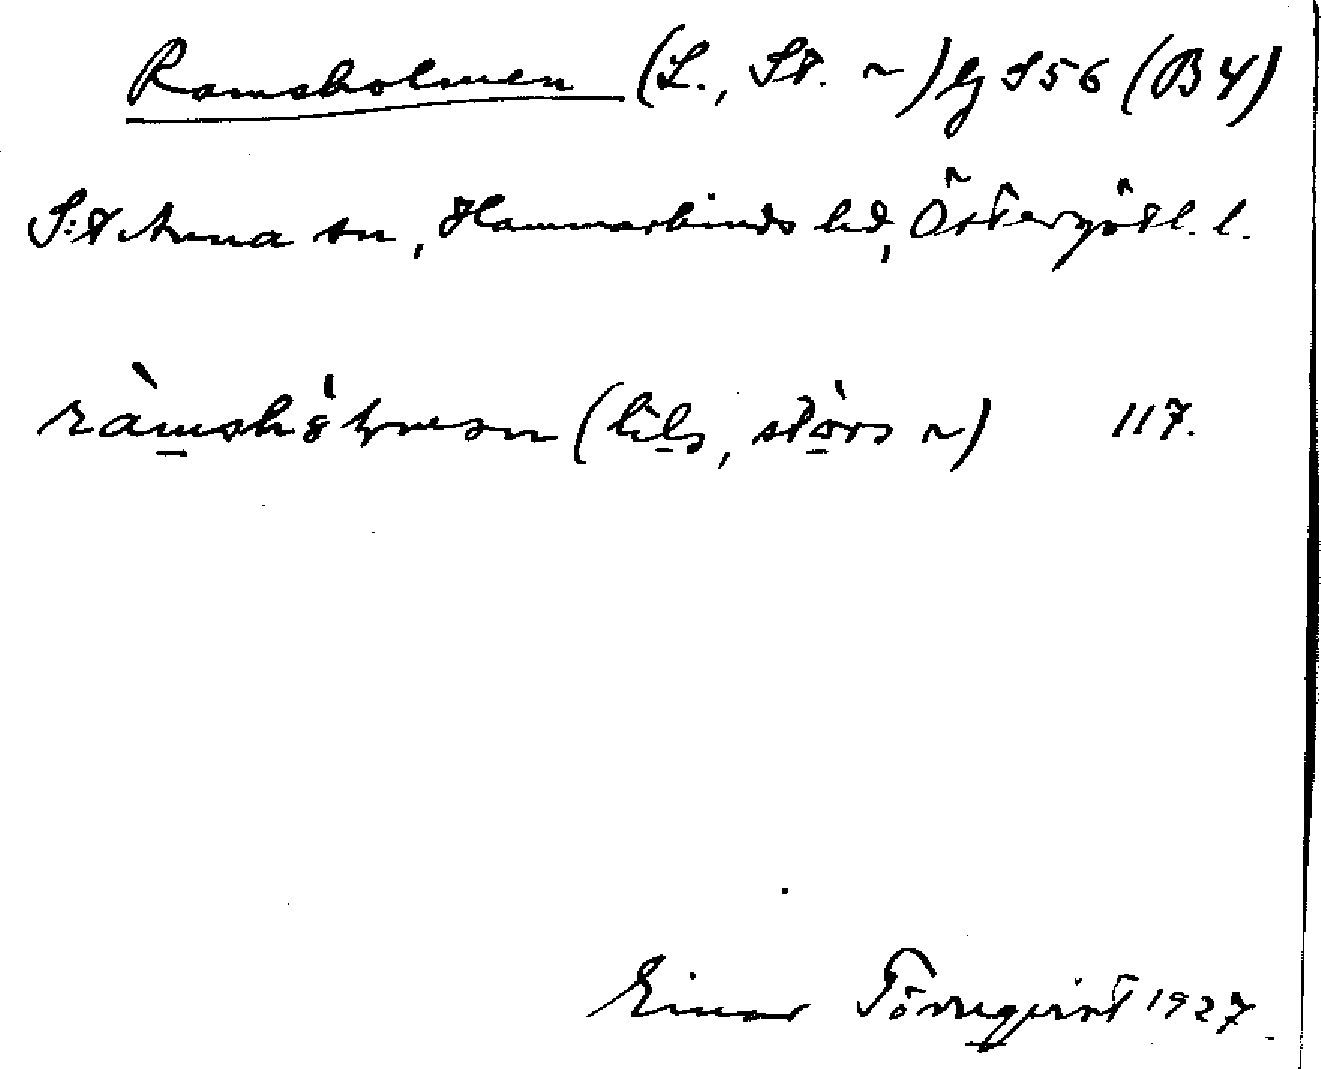 Ramsholmen (L., St. ~) hg S56 (B4)
S:t Anna sn, Hammarkinds hd, Östergötl. l.
ràmshòlmen (lila, stora ~) 117.
Einar Törnqvist 1927